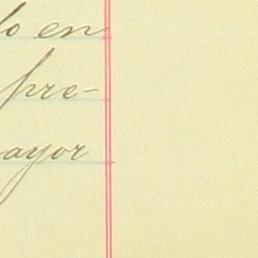 lo en
pre-
ayor